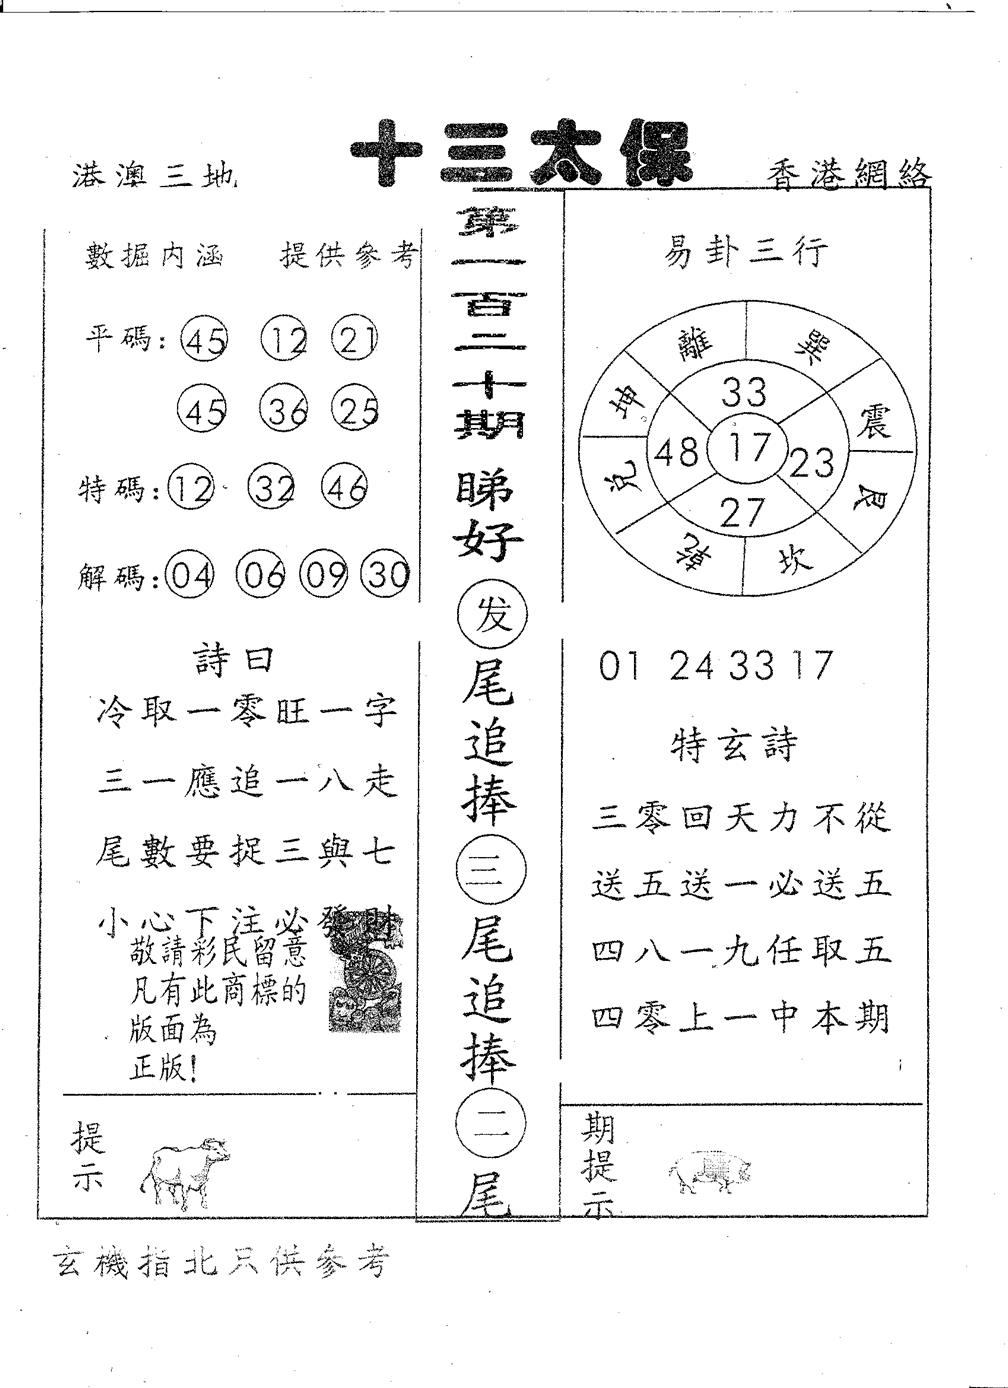 十三太保
港澳三地
香港網絡
數掘内涵 提供參考
平碼: 45 12 21
45 36 25
特碼: 12 32 46
解碼: 04 06 09 30
詩曰
冷取一零旺一字
三一應追一八走
尾數要捉三與七
小心下注必發財
敬請彩民留意
凡有此商標的
版面為
正版!
提示
第一百二十期
睇好
发
尾追捧
三
尾追捧
二
尾
易卦三行
離 巽
坤 33 震
48 17 23
兌 27 艮
乾 坎
01 24 33 17
特玄詩
三零回天力不從
送五送一必送五
四八一九任取五
四零上一中本期
期提示
玄機指北只供參考